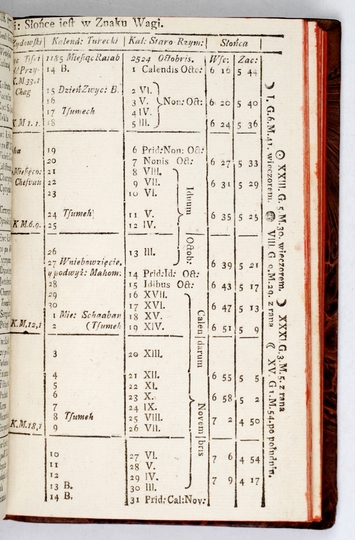 : Słońce jest w Znaku Wagi.
Kalend: Turecki Kal: Staro Rzym: Słońca
1185 Miesiąc Racab 2524 Octobris. Wsc: Zac:
14 B. 1 Calendis Oct: 6 16 5 44
K.M.33.1
15 Dzień Zwyc: B. 2 VI.
16 3 V. Non: Oct: 6 20 5 40
17 Tsumech 4 IV.
K.M 1.1. 18 5 III. 6 24 5 36
19 6 Prid: Non: Oct:
20 7 Nonis Oct: 6 27 5 33
21 8 VIII.
22 9 VII. 6 31 5 29
23 10 VI. Iduum
24 Tsumeh 11 V. 6 35 5 25
K M 6.9. 25 12 IV.
26 13 III. Octob:
27 Wniebowzięcie. 6 39 5 21
y podwyś: Mahom: 14 Prid: Id: Oct:
28 15 Idibus Oct: 6 43 5 17
29 16 XVII.
30 17 XVI. 6 47 5 13
1 Mie: Schaaban 18 XV. Calen
K.M.12,1 2 (Tsumeh 19 XIV. 6 51 5 9
3 20 XIII. darum
4 21 XII. 6 55 5 5
5 22 XI.
6 23 X. 6 58 5 2
7 24 IX.
8 Tsumeh 25 VIII. Novem 7 2 4 50
K.M.18,1 9 26 VII.
10 27 VI. bris 7 6 4 54
11 28 V.
12 29 IV. 7 9 4 17
13 B. 30 III.
14 B. 31 Prid: Cal: Nov:
XXIII. G. 5. M. 30. wieczorem. XXXI G. 3. M. 5. z rana
I. G. 6. M. 41. wieczorem. VIII. G. 9. M. 29. z rana XV. G 1. M. 54. po południu.